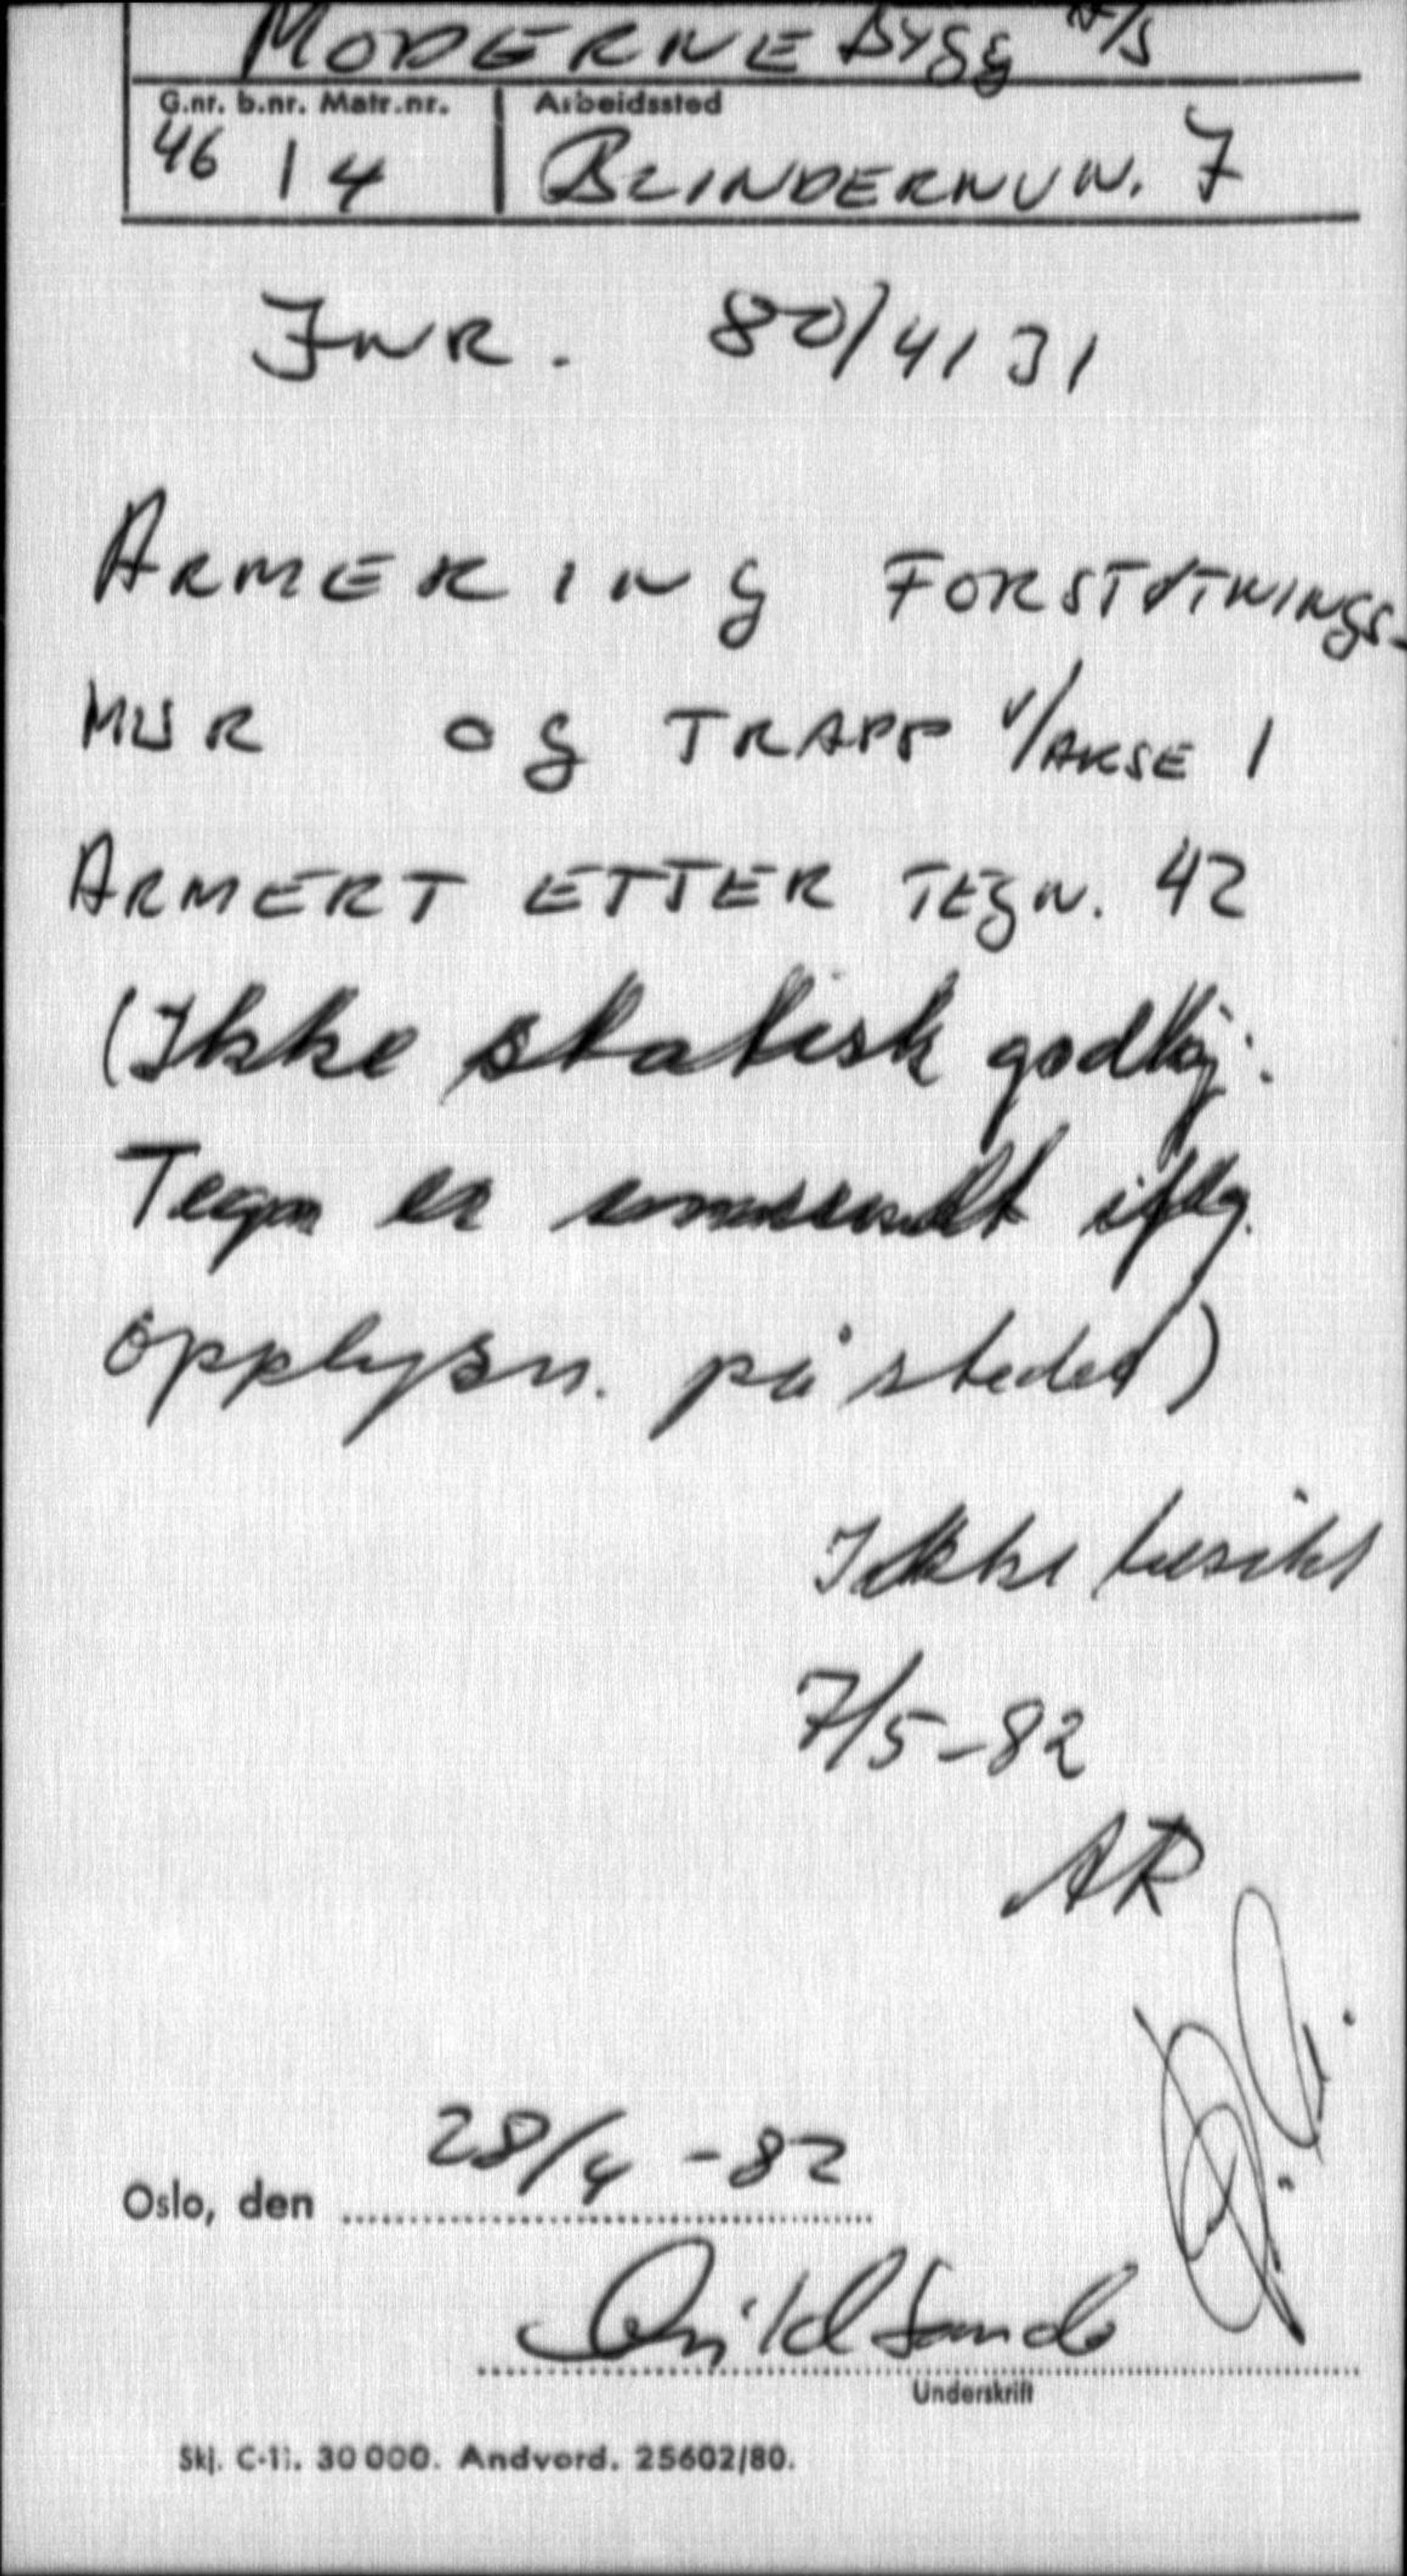 MODERNE Bygg A/S
G.nr. b.nr. Matr.nr. Arbeidssted
46 14 BLINDERNVN. 7
JNR. 80/4131
ARMERING FORSTØTNINGS-
MUR og TRAPP V/AKSE 1
ARMERT ETTER TEgN. 42
(Ikke statisk godkj.
Tegn er innsendt iflg.
opplysn. på stedet)
Ikke besikt
7/5-82
AR
28/4-82
Oslo, den
Underskrift
Skj. C-11. 30 000. Andvord. 25602/80.